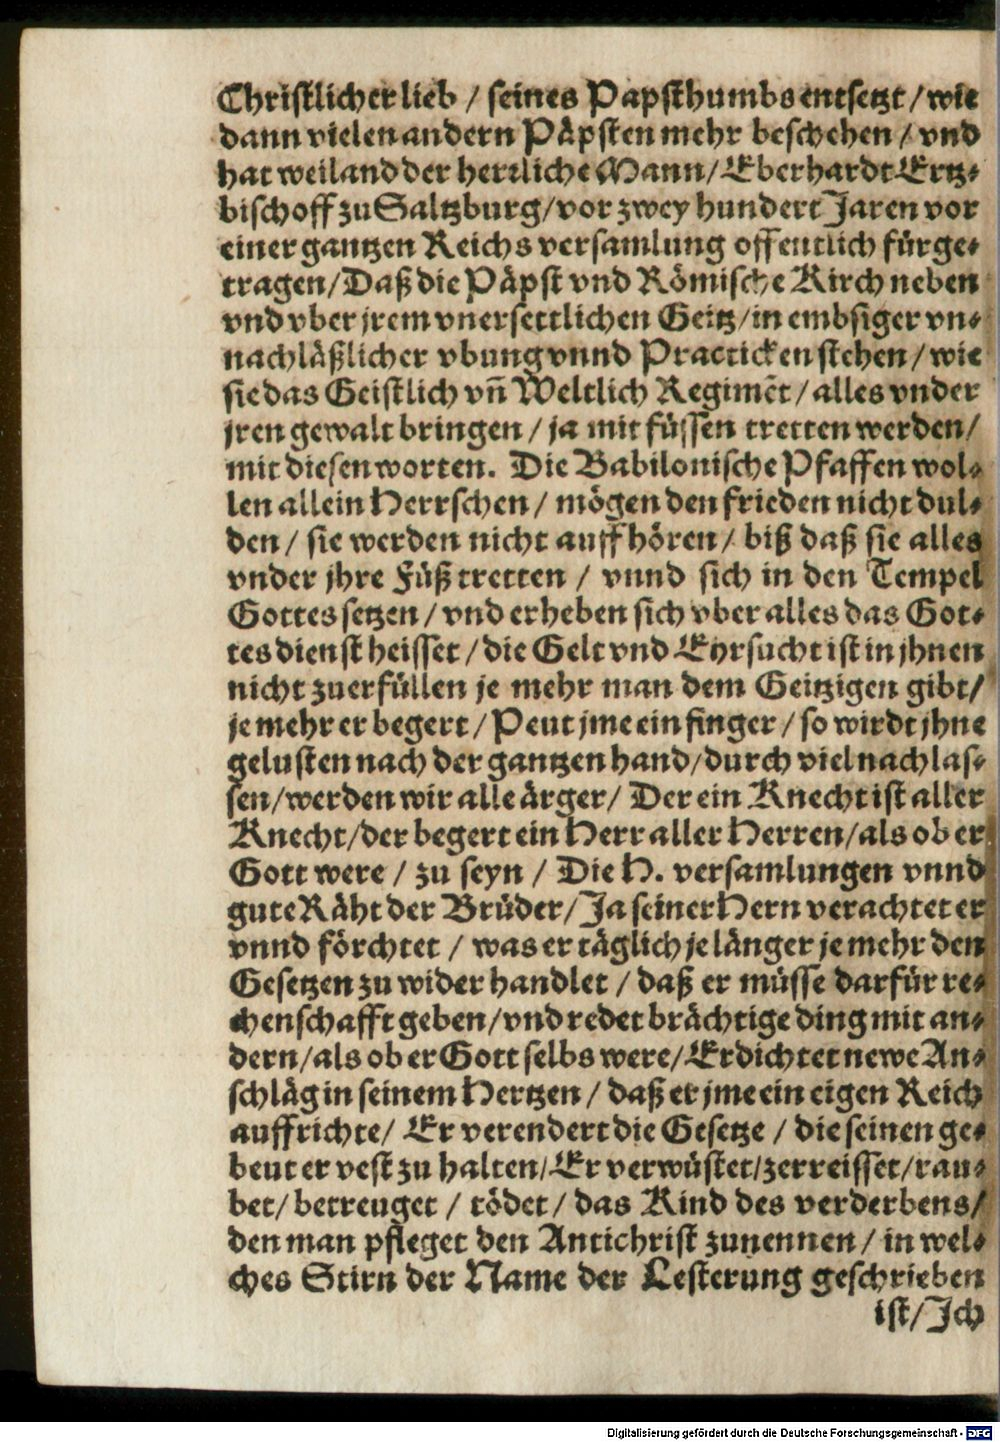 Christlicher lieb / seines Papsthumbs entsetzt / wie
dann vielen andern Päpsten mehr beschehen / vnd
hat weiland der herrliche Mann / Eberhardt Ertz-
bischoff zu Saltzburg / vor zwey hundert Jaren vor
einer gantzen Reichs versamlung offentlich fürge-
tragen / Daß die Päpst vnd Römische Kirch neben
vnd vber jrem vnersettlichen Geitz / in embsiger vn-
nachläßlicher vbung vnnd Practicken stehen / wie
sie das Geistlich vñ Weltlich Regimēt / alles vnder
jren gewalt bringen / ja mit füssen tretten werden /
mit diesen worten. Die Babilonische Pfaffen wol-
len allein Herrschen / mögen den frieden nicht dul-
den / sie werden nicht auffhören / biß daß sie alles
vnder jhre Füß tretten / vnnd sich in den Tempel
Gottes setzen / vnd erheben sich vber alles das Got-
tes dienst heisset / die Gelt vnd Eyrsucht ist in jhnen
nicht zuerfüllen je mehr man dem Geitzigen gibt /
je mehr er begert / Peut jme ein finger / so wirdt jhne
gelusten nach der gantzen hand / durch viel nachlas-
sen / werden wir alle ärger / Der ein Knecht ist aller
Knecht / der begert ein Herr aller Herren / als ob er
Gott were / zu seyn / Die H. versamlungen vnnd
gute Räht der Brüder / Ja seiner Hern verachtet er
vnnd förchtet / was er täglich je länger je mehr den
Gesetzen zu wider handlet / daß er müsse darfür re-
chenschafft geben / vnd redet brächtige ding mit an-
dern / als ob er Gott selbs were / Erdichtet newe An-
schläg in seinem Hertzen / daß er jme ein eigen Reich
auffrichte / Er verendert die Gesetze / die seinen ge-
beut er vest zu halten / Er verwüstet / zerreisset / rau-
bet / betreuget / tödet / das Kind des verderbens /
den man pfleget den Antichrist zunennen / in wel-
ches Stirn der Name der Lesterung geschrieben
ist / Ich
Digitalisierung gefördert durch die Deutsche Forschungsgemeinschaft - DFG